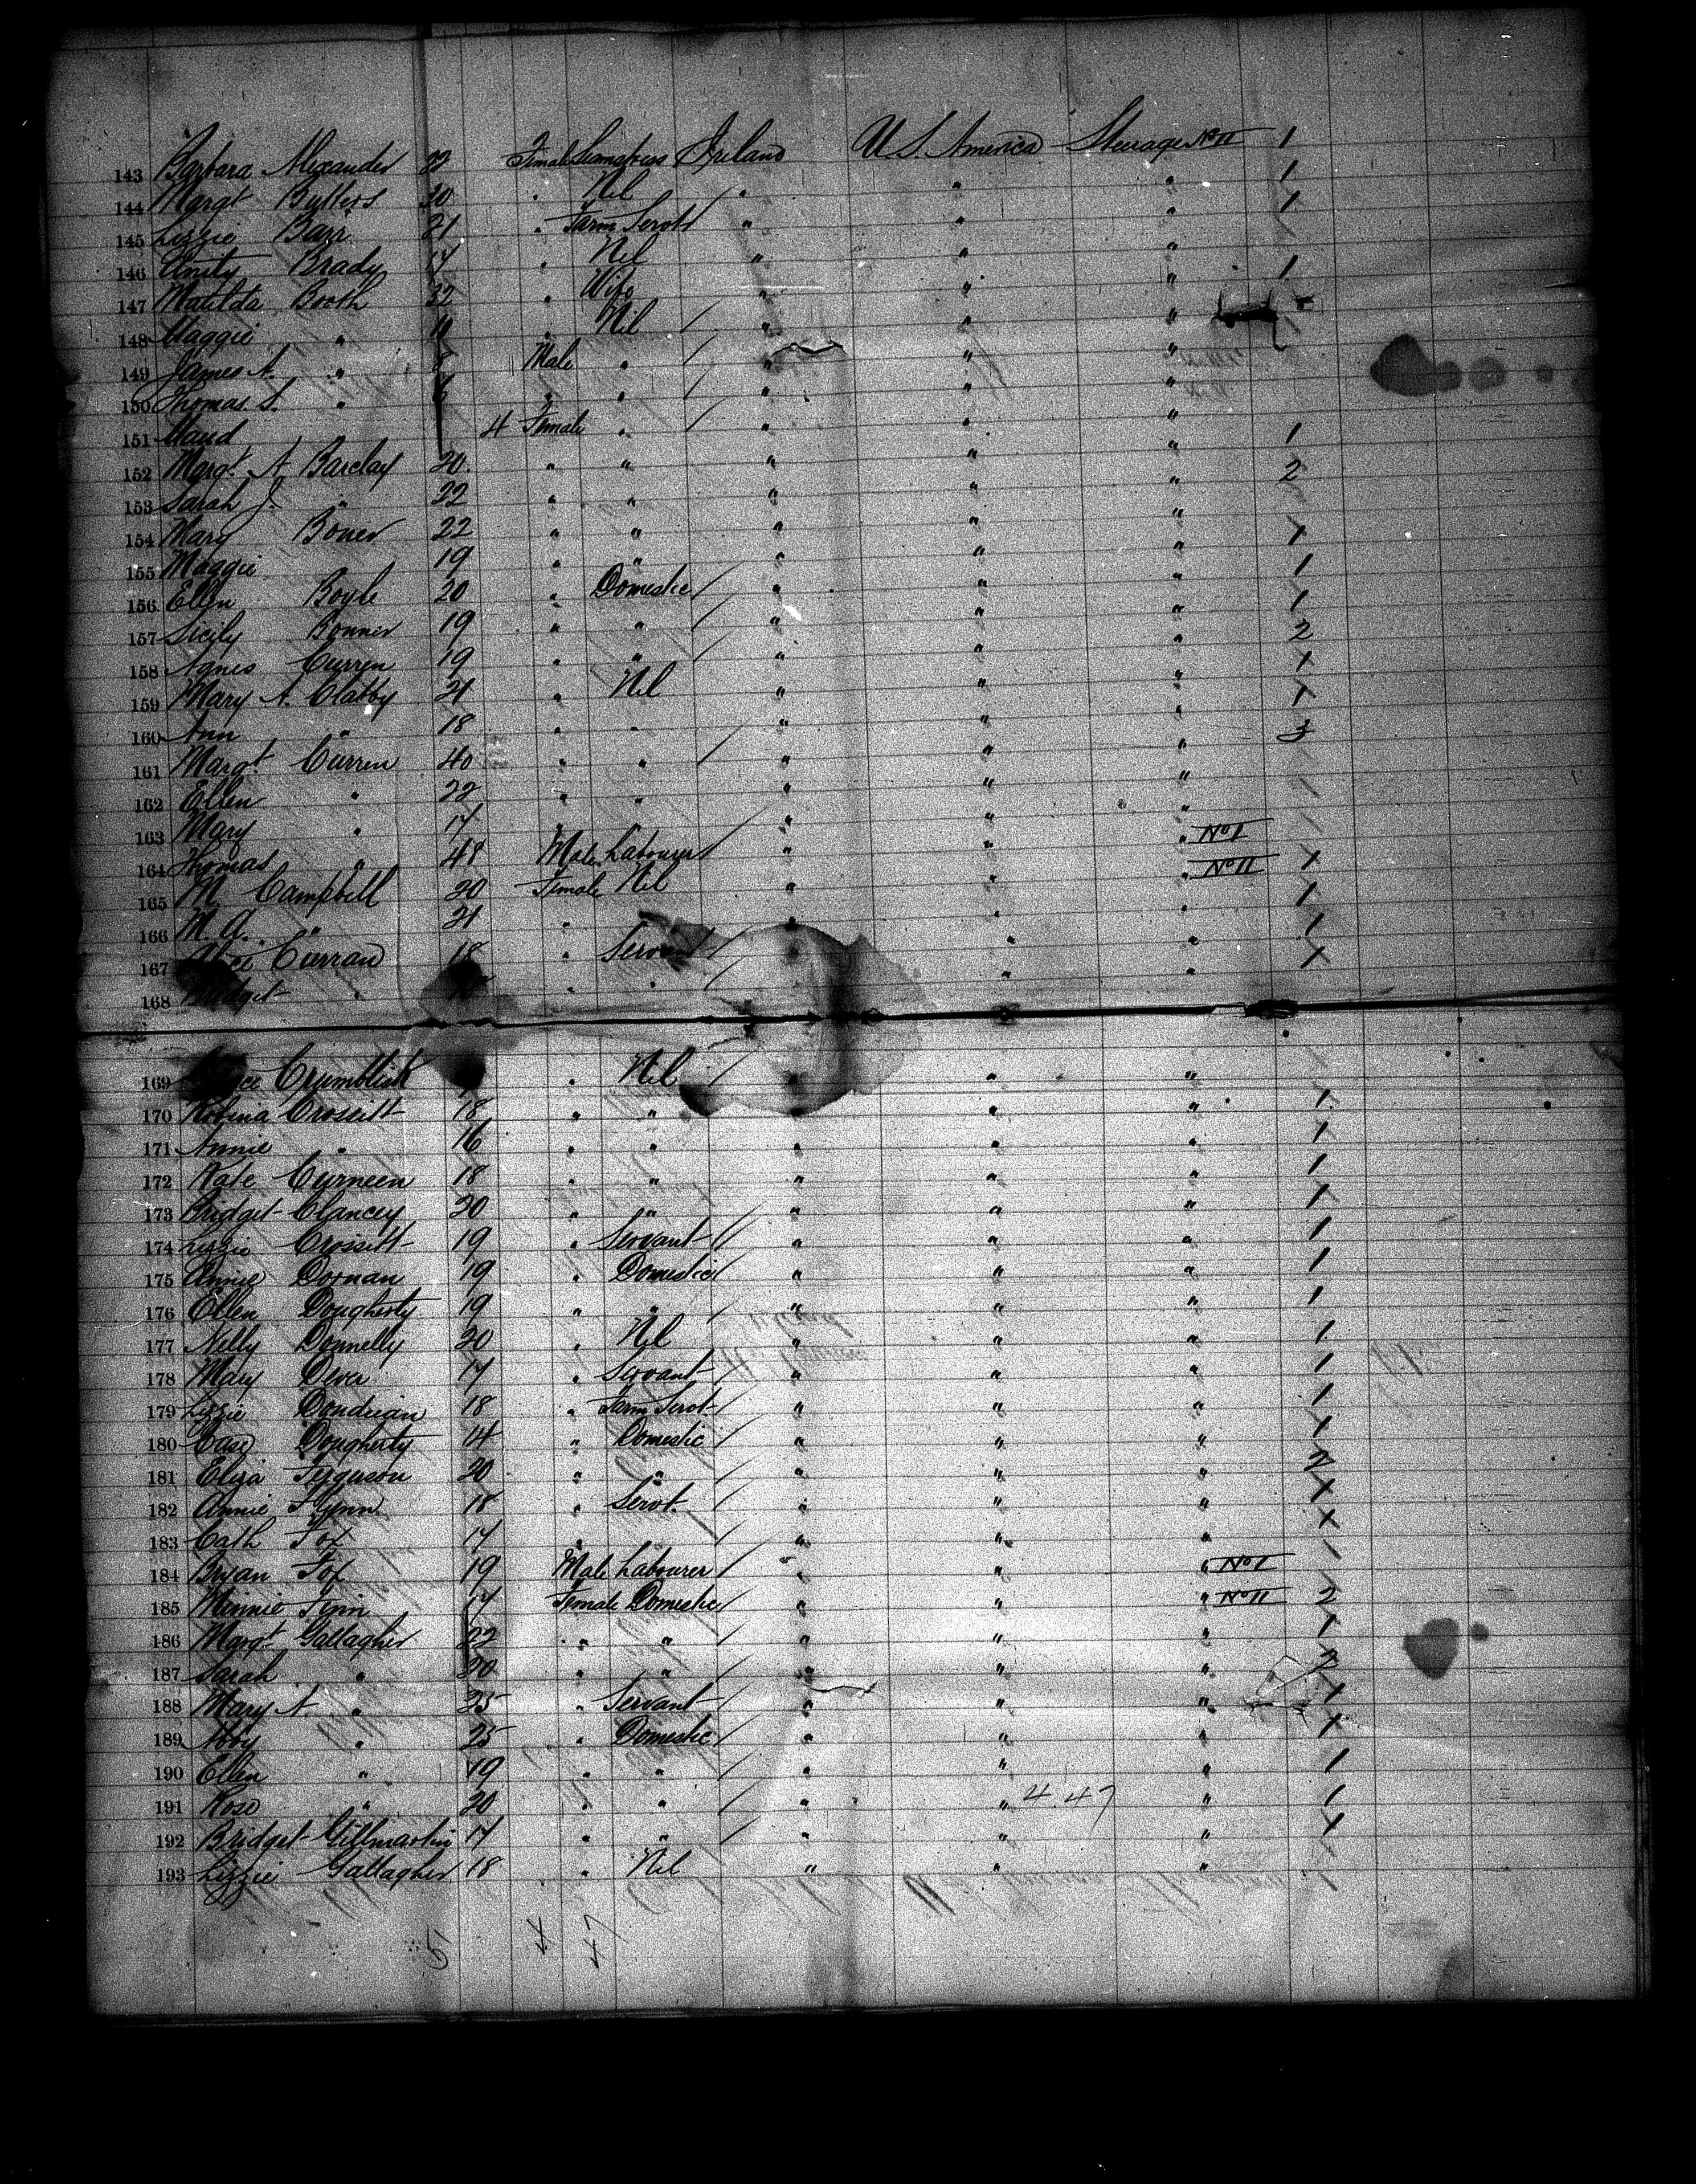 143 Barbara Alexander 22 Female Seamstress Ireland U.S. America Steerage No II 1
144 Margt Butters 30 " Nil " " " 1
145 Lizzie Barr 21 " Farm Servt " " " 1
146 Unity Brady 17 " Nil " " "
147 Matilda Booth 32 " Wife " " " 1
148 Maggie " " Nil " " "
149 James A. " Male " " " "
150 Thomas S. " 6 " " " " "
151 Maud 4 Female " " " "
152 Margt A Barclay 20 " " " " " 1
153 Sarah J. " 22 " " " " " 2
154 Mary Boner 22 " " " " "
155 Maggie 19 " " " " " 1
156 Ellen Boyle 20 " Domestic " " " 1
157 Sicily Bonner 19 " " " " " 1
158 Agnes Curren 19 " " " " " 2
159 Mary A. Clabby 21 " Nil " " " 1
160 Ann " 18 " " " " " 1
161 Margt Curren 40 " " " " " 3
162 Ellen " 22 " " " " "
163 Mary " 17 " " " "
164 Thomas " 48 Male Labourer " " " No I
165 M Campbell 20 Female Nil " " " No II 1
166 M. A. " 21 " " " " 1
167 Curran 18 " " " " 1
168 Bridget " " " " " 1
169 Crumblish " Nil " " "
170 Robina Crossett 18 " " " " 1
171 Annie " 16 " " " " " 1
172 Kate Curneen 18 " " " " " 1
173 Bridget Clancey 20 " " " " " 1
174 Lizzie Crossett 19 " Servant " " " 1
175 Annie Dornan 19 " Domestic " " " 1
176 Ellen Dougherty 19 " " " " " 1
177 Nelly Donnelly 20 " Nil " " " 1
178 Mary Dever 17 " Servant " " " 1
179 Lizzie 18 " Farm Servt " " " 1
180 Dougherty 14 " Domestic " " " 1
181 Eliza Ferguson 20 " " " " " 2
182 Annie Flynn 18 " Servt. " " " 1
183 Cath Fox 17 " " " " 1
184 Bryan Fox 19 Male Labourer " " " No I
185 Minnie Finn 17 Female Domestic " " " No II 2
186 Margt Gallagher 22 " " " " " 1
187 Sarah " 20 " " " " " 2
188 Mary A. " 25 " Servant " " " 1
189 Abby " 25 " Domestic " " " 1
190 Ellen " 19 " " " " " 1
191 Rose " 20 " " " " 4.47 " 1
192 Bridget Gillmartin 17 " " " " " 1
193 Lizzie Gallagher 18 " Nil " " "
5 4 47